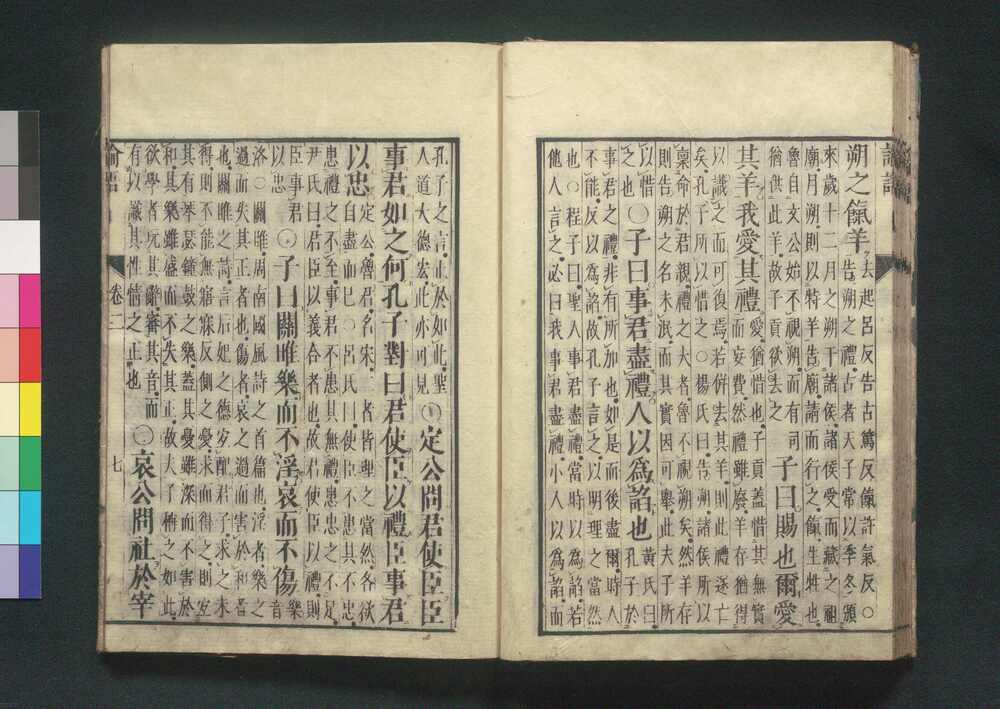 朔之餼羊
去起呂反告古篤反餼許氣反○
告朔之禮古者天子常以季冬頒
來歲十二月之朔于諸侯諸侯受而藏之祖
廟月朔則以特羊告廟請而行之餼生牲也
魯自文公始不視朔而有司
猶供此羊故子貢欲去之
子曰賜也爾愛
其羊我愛其禮
愛猶惜也子貢蓋惜其無實
而妄費然禮雖廢羊存猶得
以識之而可復焉若併去其羊則此禮遂亡
矣孔子所以惜之○楊氏曰告朔諸侯所以
稟命於君親禮之大者魯不視朔矣然羊存
則告朔之名未泯而其實因可舉此夫子所
以惜
之也
○子曰事君盡禮人以爲諂也
黃氏曰
孔子於
事君之禮非有所加也如是而後盡爾時人
不能反以爲諂故孔子言之以明理之當然
也○程子曰聖人事君盡禮當時以爲諂若
他人言之必曰我事君盡禮小人以爲諂而
孔子之言止於如此聖
人道大德宏此亦可見
○定公問君使臣臣
事君如之何孔子對曰君使臣以禮臣事君
以忠
定公魯君名宋二者皆理之當然各欲
自盡而已○呂氏曰使臣不患其不忠
患禮之不至事君不患其無禮患忠之不足
尹氏曰君臣以義合者也故君使臣以禮則
臣事君
以忠
○子曰關雎樂而不淫哀而不傷
樂
音
洛○關雎周南國風詩之首篇也淫者樂之
過而失其正者也傷者哀之過而害於和者
也關雎之詩言后妃之德宜配君子求之未
得則不能無寤寐反側之憂求而得之則宜
其有琴瑟鐘鼓之樂蓋其憂雖深而不害於
和其樂雖盛而不失其正故夫子稱之如此
欲學者玩其辭審其音而
有以識其性情之正也
○哀公問社於宰
論語 卷二 七